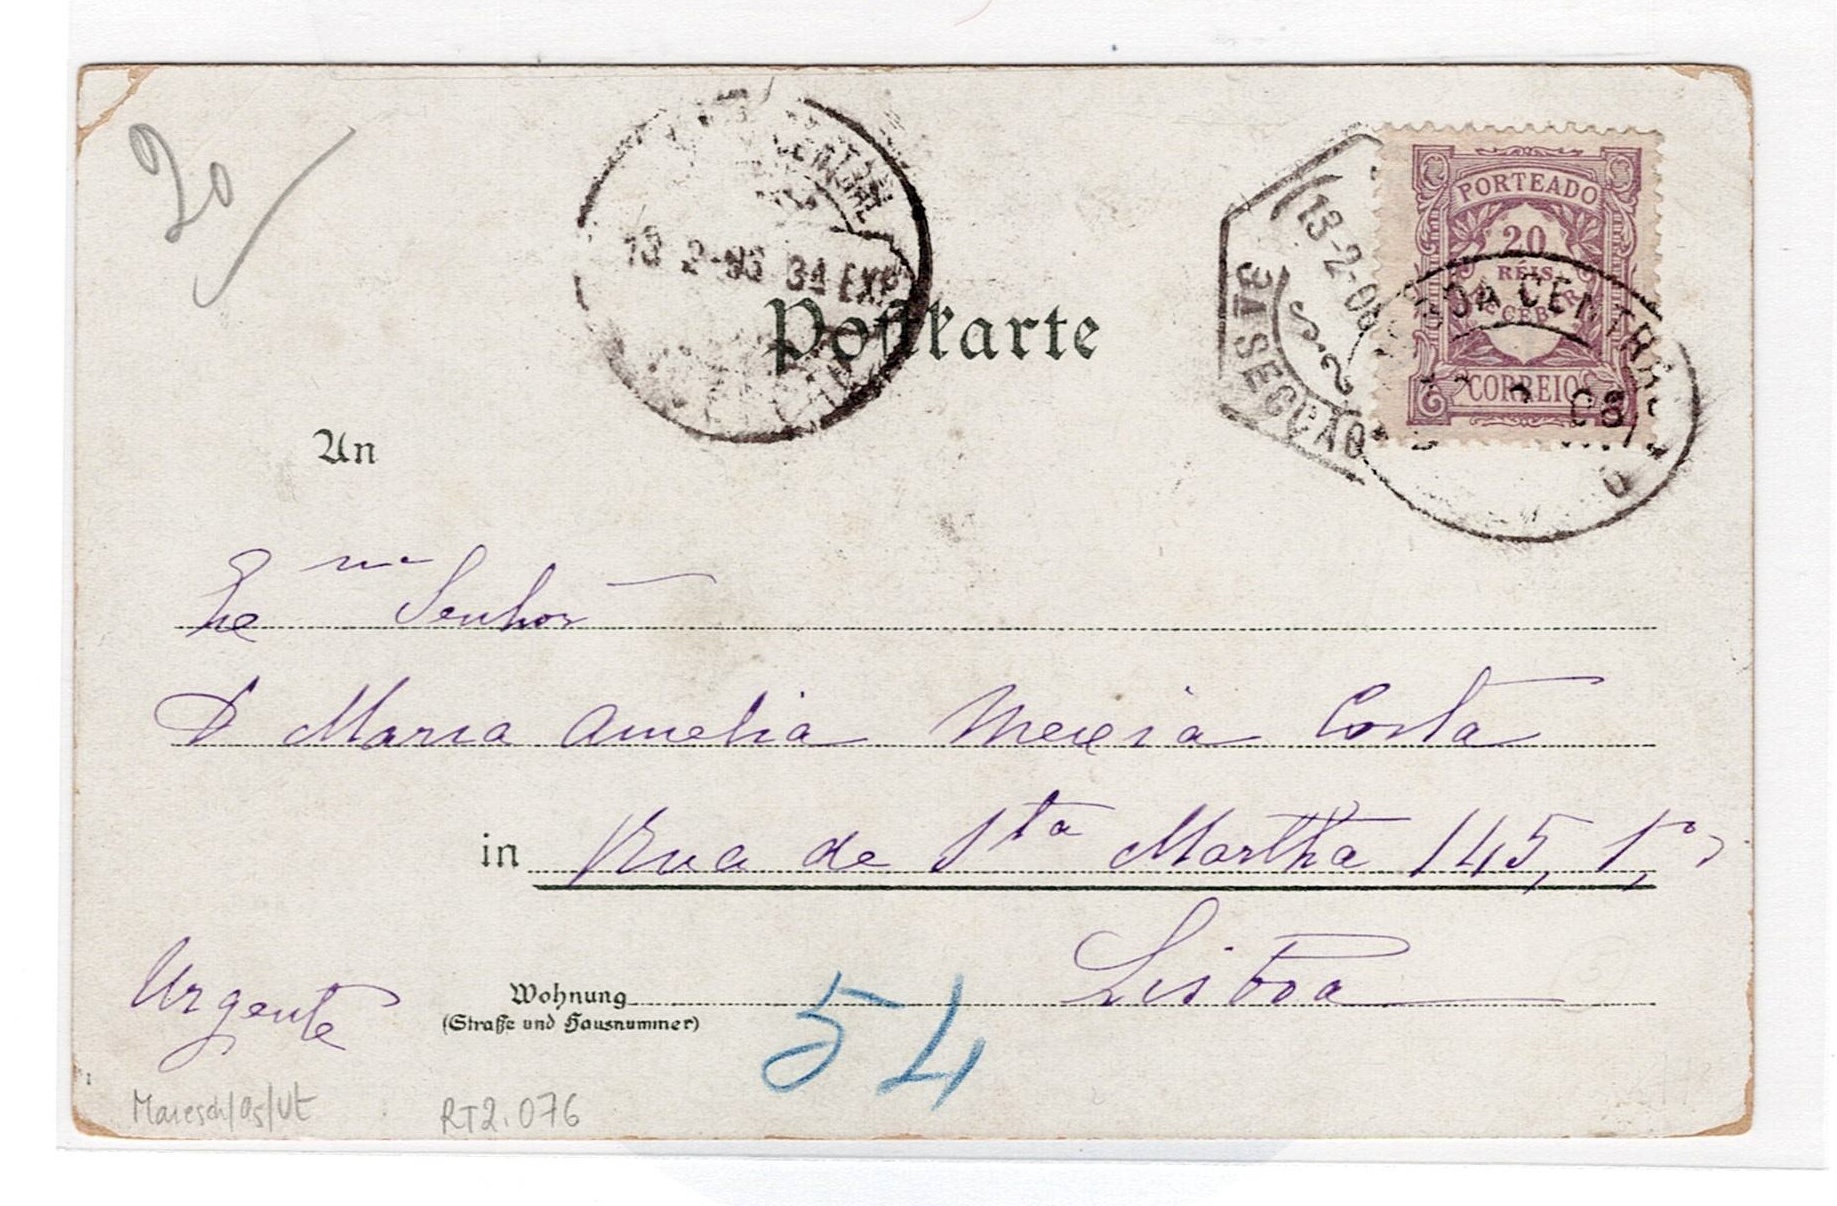 20
CENTRAL
13 2-06 3ª EXP
13-2-06
3ª SECÇÃO
PORTEADO
20
REIS
RECEBER
CORREIO
LISBOA CENTRAL
Postkarte
An
Exma Senhor
D Maria Amelia Mexia Costa
in Rua de Sta Martha 145, 1º
Lisboa
Urgente
Wohnung
(Straße und Hausnummer)
54
RT2.076